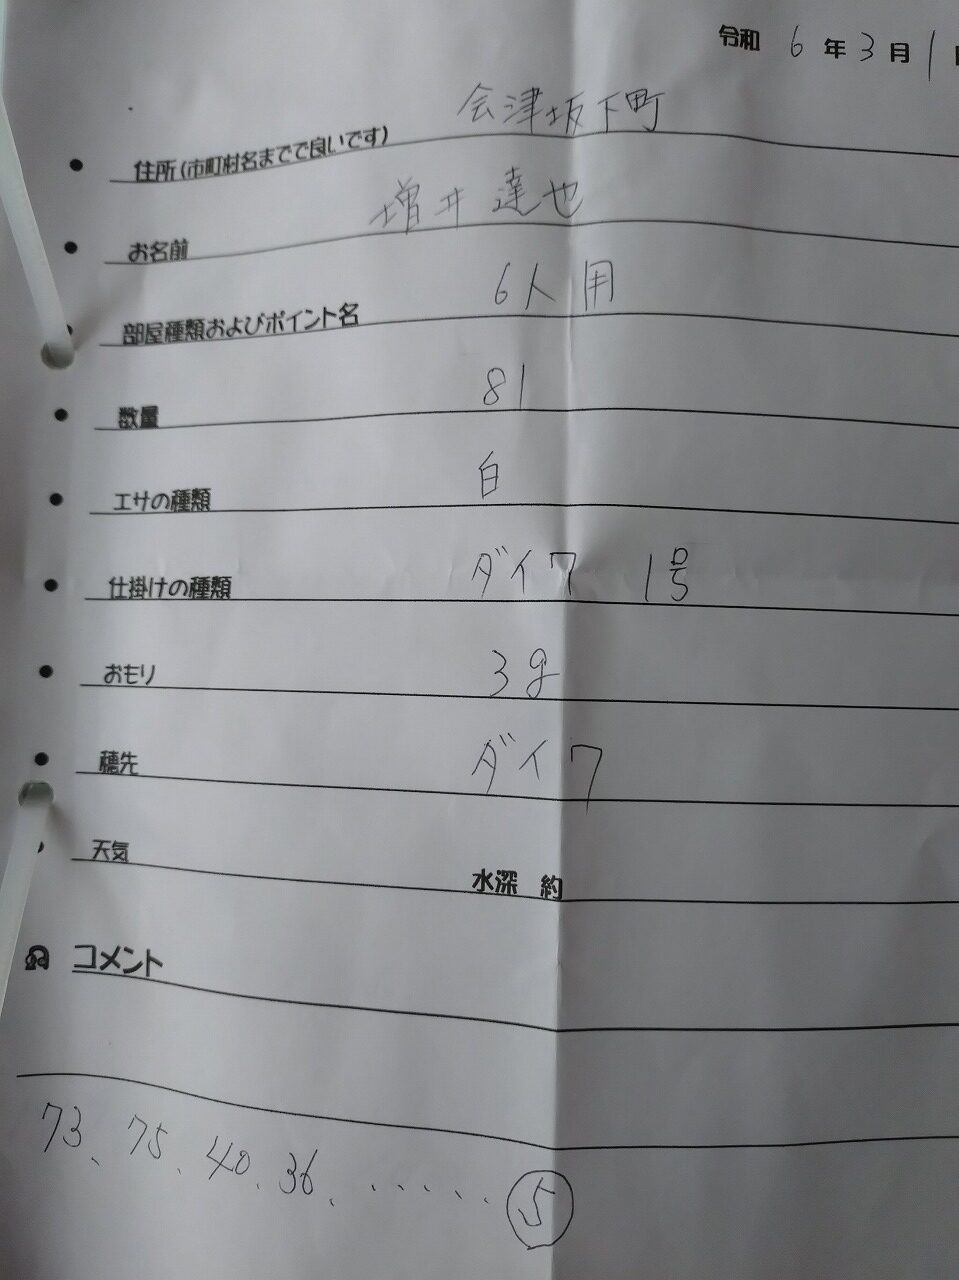 令和 6 年 3 月 1 日
会津坂下町
住所(市町村名までで良いです)
増井 達也
お名前
6人用
部屋種類およびポイント名
81
数量
白
エサの種類
ダイワ 1号
仕掛けの種類
3g
おもり
ダイワ
穂先
天気
水深 約
コメント
73、75、40、36、・・・・・ ⑤